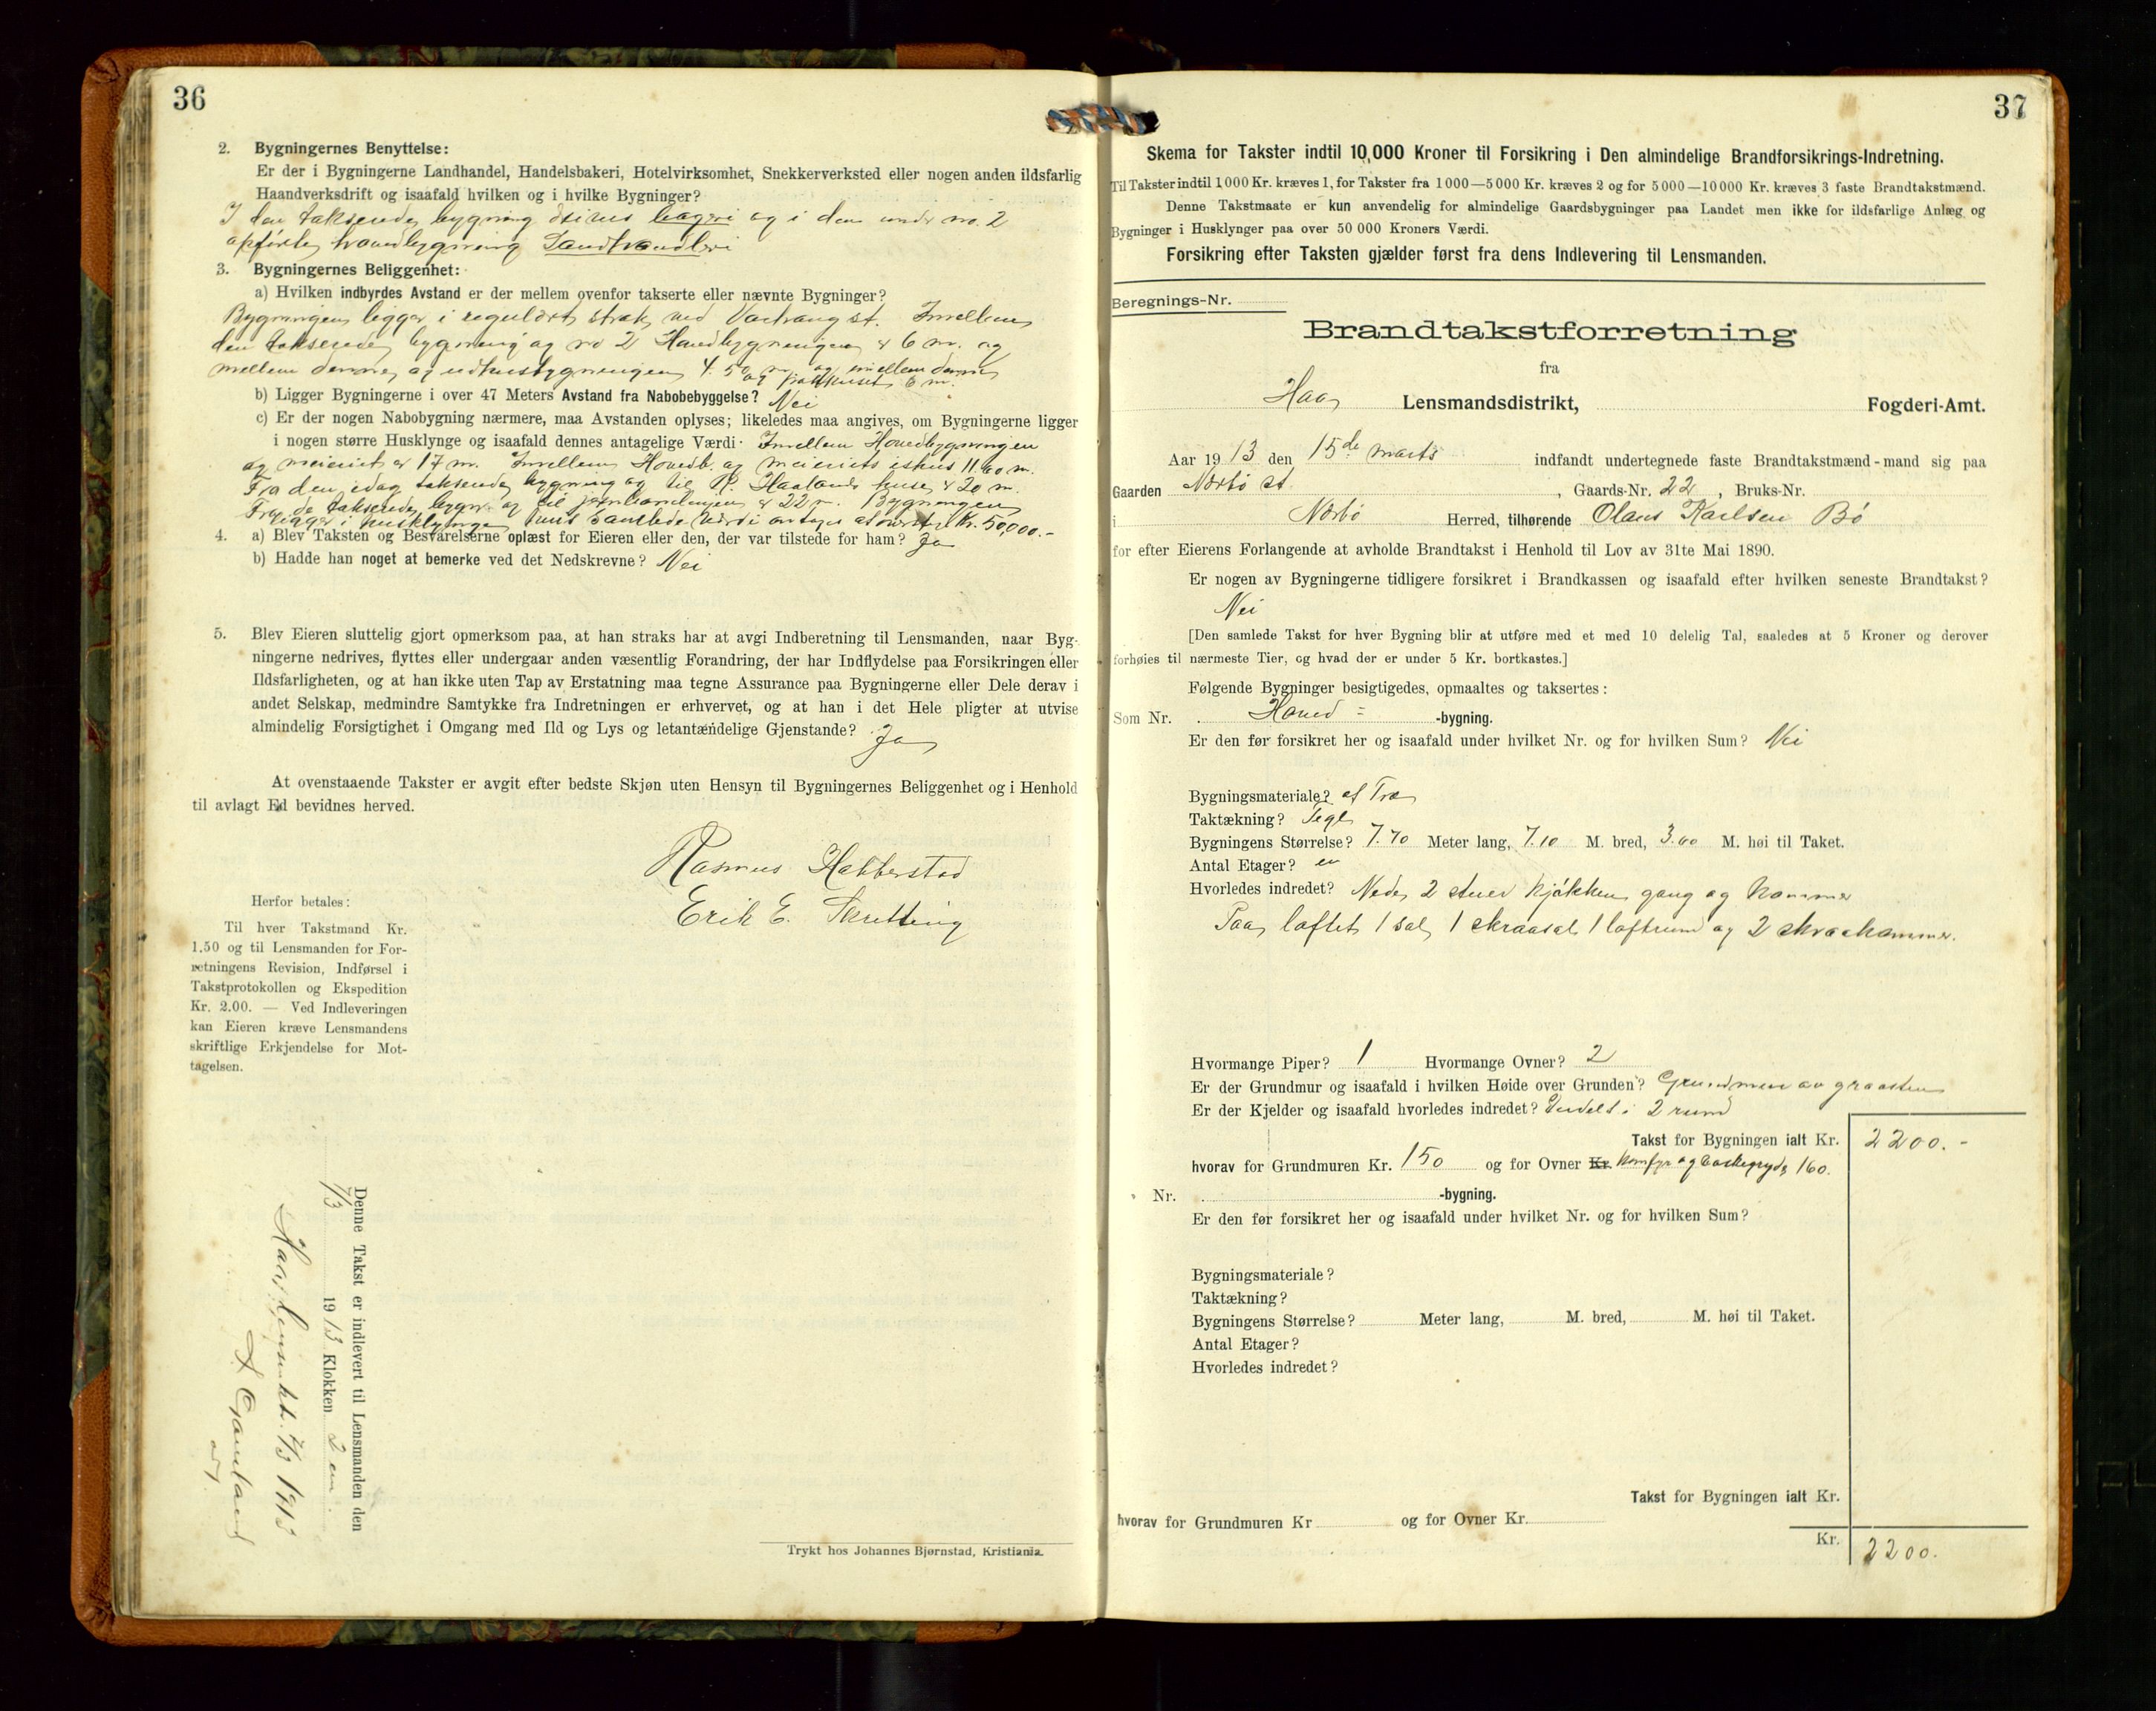 36
2. Bygningernes Benyttelse:
Er der i Bygningerne Landhandel, Handelsbakeri, Hotelvirksomhet, Snekkerverksted eller nogen anden ildsfarlig
Haandverksdrift og isaafald hvilken og i hvilke Bygninger?
I den takserede bygning drives bageri og i den under no. 2
opførte hovedbygning Landhandleri
3. Bygningernes Beliggenhet:
a) Hvilken indbyrdes Avstand er der mellem ovenfor takserte eller nævnte Bygninger?
Bygningen ligger i reguleret strøk ved Varhaug st. Imellem
den takserede bygning og no 2 Hovedbygningen er 6 m. og
mellem denne og udhusbygningen 4.50 m og imellem denne
og pakhuset 6 m.
b) Ligger Bygningerne i over 47 Meters Avstand fra Nabobebyggelse? Nei
c) Er der nogen Nabobygning nærmere, maa Avstanden oplyses; likeledes maa angives, om Bygningerne ligger
i nogen større Husklynge og isaafald dennes antagelige Værdi. Imellem Hovedbygningen
og meieriet er 17 m. Imellem Hovedb. og meieriets ishus 11.60 m.
Fra den idag takserede bygning og til R. Haalands huse er 20 m.
Fra de takserede bygn. og til er 22 m. Bygningen
ligger i husklynge hvis samlede værdi antages at Kr. 50,000.-
4. a) Blev Taksten og Besvarelserne oplæst for Eieren eller den, der var tilstede for ham? Ja
b) Hadde han noget at bemerke ved det Nedskrevne? Nei
5. Blev Eieren sluttelig gjort opmerksom paa, at han straks har at avgi Indberetning til Lensmanden, naar Byg-
ningerne nedrives, flyttes eller undergaar anden væsentlig Forandring, der har Indflydelse paa Forsikringen eller
Ildsfarligheten, og at han ikke uten Tap av Erstatning maa tegne Assurance paa Bygningerne eller Dele derav i
andet Selskap, medmindre Samtykke fra Indretningen er erhvervet, og at han i det Hele pligter at utvise
almindelig Forsigtighet i Omgang med Ild og Lys og letantændelige Gjenstande? Ja
At ovenstaaende Takster er avgit efter bedste Skjøn uten Hensyn til Bygningernes Beliggenhet og i Henhold
til avlagt Ed bevidnes herved.
Rasmus Habberstad
Erik E. Skretting
Herfor betales:
Til hver Takstmand Kr.
1.50 og til Lensmanden for For-
retningens Revision, Indførsel i
Takstprotokollen og Ekspedition
Kr. 2.00. — Ved Indleveringen
kan Eieren kræve Lensmandens
skriftlige Erkjendelse for Mot-
tagelsen.
Denne Takst er indlevert til Lensmanden den
7/3 1913 Klokken 2 em.
Haa Lensm.ktr. 7/3 1913
Trykt hos Johannes Bjørnstad, Kristiania.
37
Skema for Takster indtil 10,000 Kroner til Forsikring i Den almindelige Brandforsikrings-Indretning.
Til Takster indtil 1000 Kr. kræves 1, for Takster fra 1000—5000 Kr. kræves 2 og for 5000—10000 Kr. kræves 3 faste Brandtakstmænd.
Denne Takstmaate er kun anvendelig for almindelige Gaardsbygninger paa Landet men ikke for ildsfarlige Anlæg og
Bygninger i Husklynger paa over 50 000 Kroners Værdi.
Forsikring efter Taksten gjælder først fra dens Indlevering til Lensmanden.
Beregnings-Nr.
Brandtakstforretning
fra
Haa Lensmandsdistrikt, Fogderi-Amt.
Aar 1913 den 15de marts indfandt undertegnede faste Brandtakstmænd-mand sig paa
Gaarden Nærbø st. , Gaards-Nr. 22, Bruks-Nr.
i Nærbø Herred, tilhørende Olaus Karlsen Bø
for efter Eierens Forlangende at avholde Brandtakst i Henhold til Lov av 31te Mai 1890.
Er nogen av Bygningerne tidligere forsikret i Brandkassen og isaafald efter hvilken seneste Brandtakst?
Nei
[Den samlede Takst for hver Bygning blir at utføre med et med 10 delelig Tal, saaledes at 5 Kroner og derover
forhøies til nærmeste Tier, og hvad der er under 5 Kr. bortkastes.]
Følgende Bygninger besigtigedes, opmaaltes og taksertes:
Som Nr. Hoved= -bygning.
Er den før forsikret her og isaafald under hvilket Nr. og for hvilken Sum? Nei
Bygningsmateriale? af Træ
Taktækning? Tegl
Bygningens Størrelse? 7.70 Meter lang, 7.10 M. bred, 3.00 M. høi til Taket.
Antal Etager? en
Hvorledes indredet? Nede 2 stuer kjøkken gang og kammer
Paa loftet 1 sal, 1 skraasal 1 loftrum og 2 skraakammer.
Hvormange Piper? 1 Hvormange Ovner? 2
Er der Grundmur og isaafald i hvilken Høide over Grunden? Grundmur av graasten
Er der Kjelder og isaafald hvorledes indredet? Indelt i 2 rum
Takst for Bygningen ialt Kr. 2200.-
hvorav for Grundmuren Kr. 150 og for Ovner Kr. komfyr og 160.
Nr. -bygning.
Er den før forsikret her og isaafald under hvilket Nr. og for hvilken Sum?
Bygningsmateriale?
Taktækning?
Bygningens Størrelse? Meter lang, M. bred, M. høi til Taket.
Antal Etager?
Hvorledes indredet?
Takst for Bygningen ialt Kr.
hvorav for Grundmuren Kr og for Ovner Kr.
Kr. 2200.